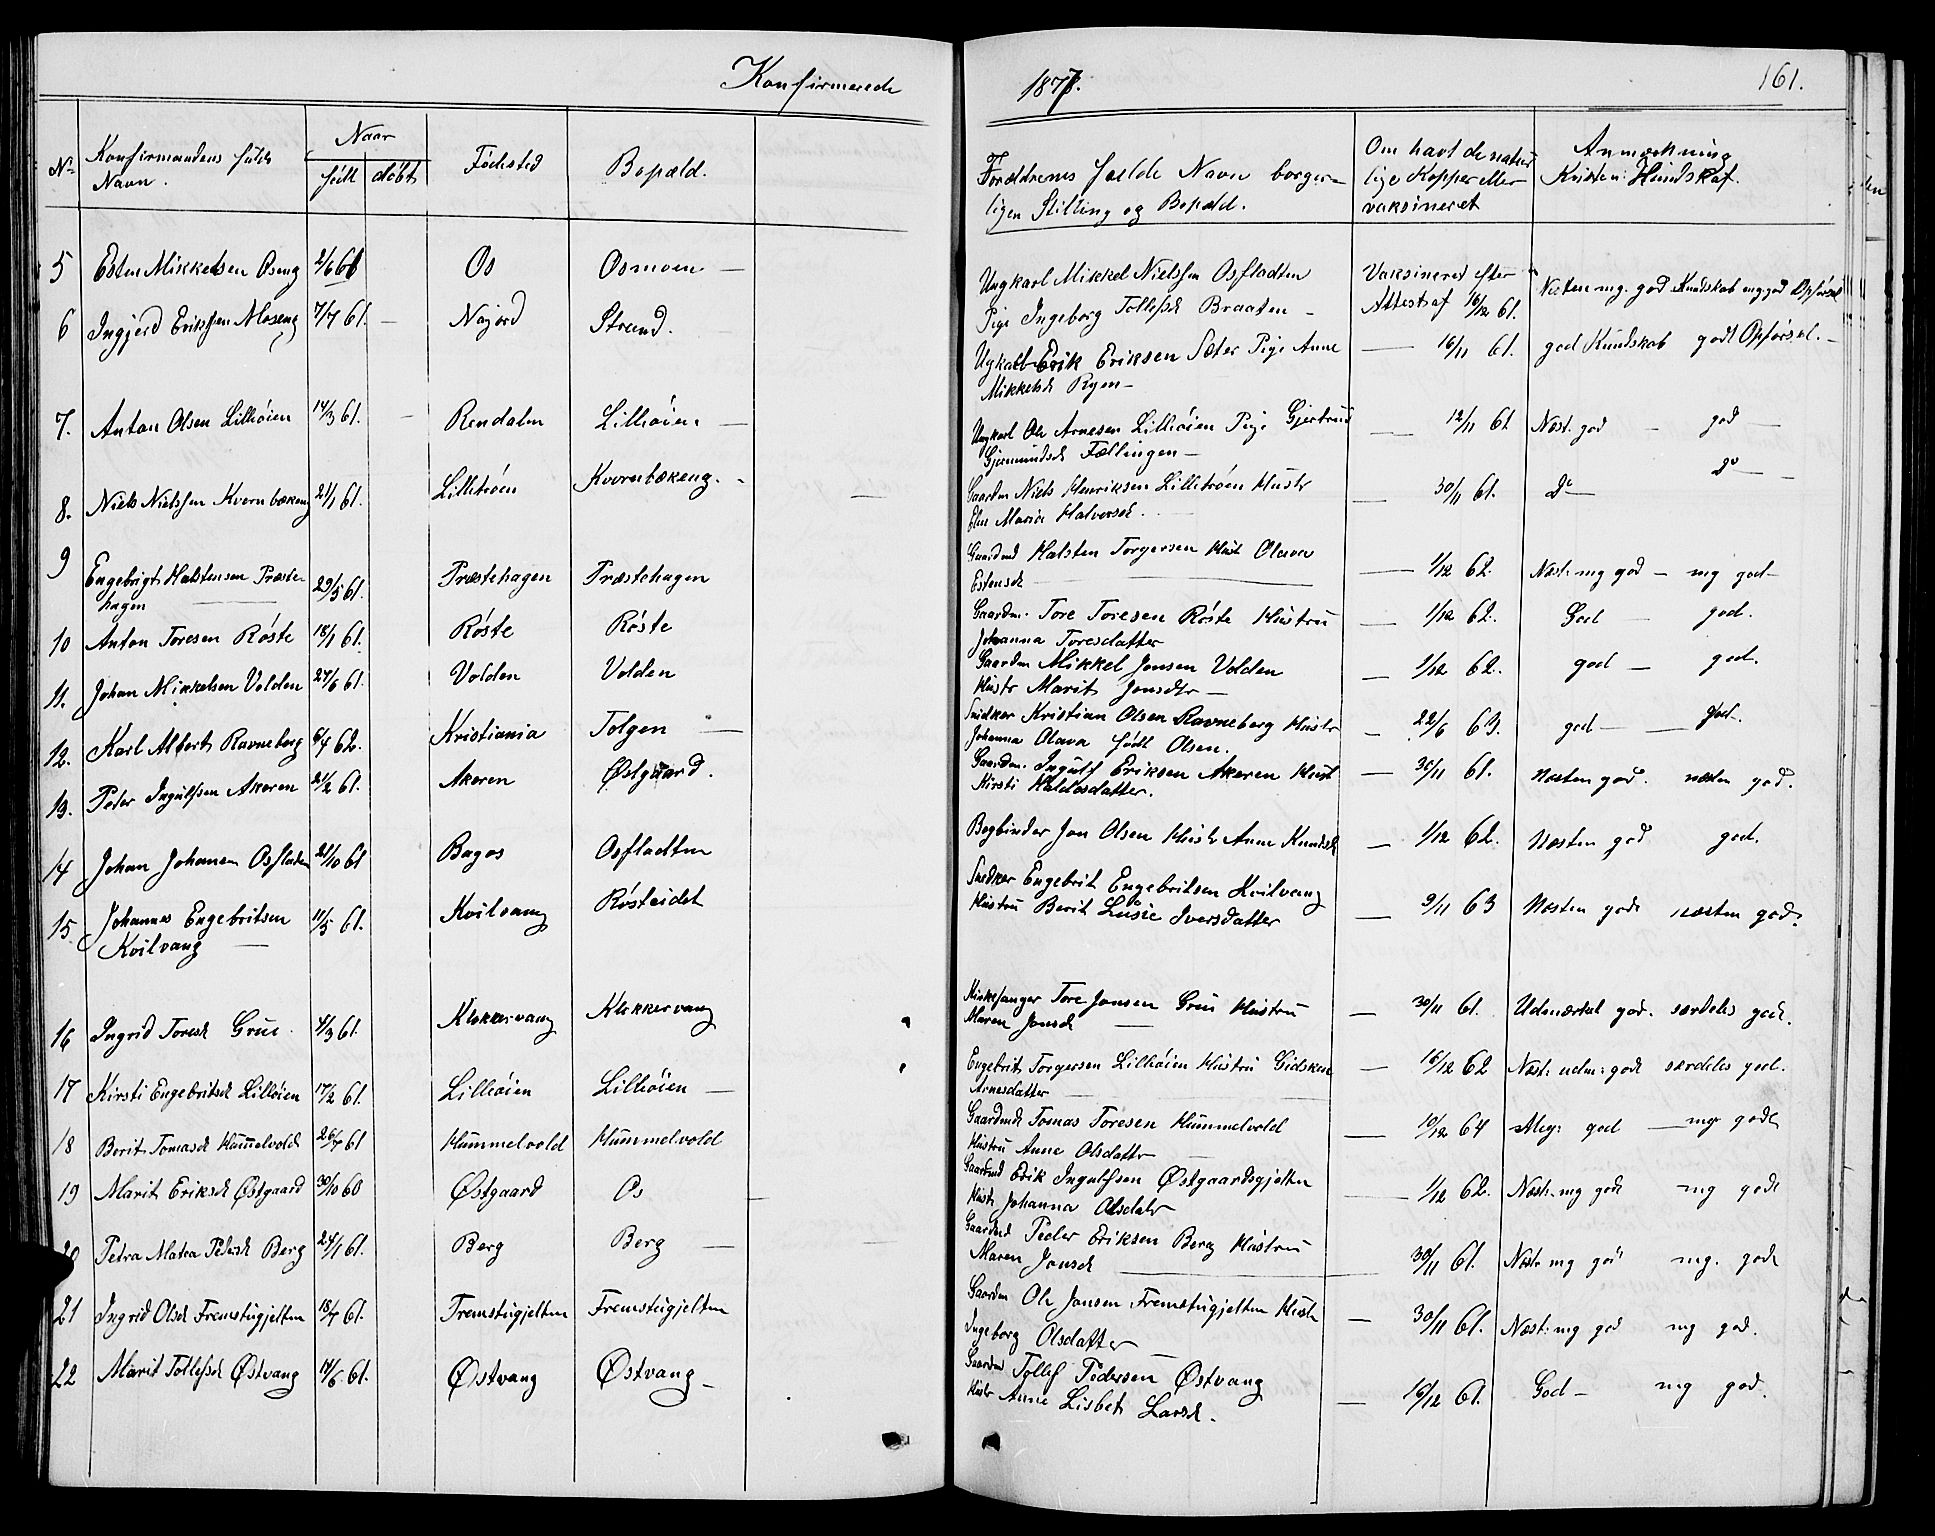 Konfirmerede
1877.
161.
No
Konfirmandens fulde
Navn.
Naar
født
døbt
Fødested
Bopæld.
Forældrenes fulde Navn borger-
ligen Stilling og Bopæld.
Om havt de natur
lige Kopper eller
vaksineret
Anmærkning
Kristen: Kundskab.
5 Esten Mikkelsen Oseng 2/6 61 Os Osmoen —
Ungkarl Mikkel Nielssen Osfladten
Pige Ingeborg Tollefsd Braaten —
Vaksinered efter
Attest af 16/12 61.
Næsten mg. god Kundskab mg god Opførsel
6 Ingjerd Erikssen Moseng 7/7 61. — Nojord Strand.
Ugkarl Erik Eriksen Sæter Pige Anne
Mikkelsd Ryen —
— 16/11 61. god Kundskab godt Opførsel. —
7. Anton Olsen Lilleøien 14/3 61. — Rendalen Lilleøien —
Ungkarl Ole Arnesen Lilleøien Pige Gjertrud
Gjermundsd Fællingen —
— 12/11 61 Næst. god — god —
8. Niels Nielssen Kvernbækeng 21/1 61. Lilletrøen Kvernbækeng. —
Gaardm Niels Henriksen Lilletrøen Hustr
Else Maria Halversd. —
— 30/11 61. Do — Do —
9 Engebrigt Halstensen Præste-
hagen — 29/5 61. Præstehagen Præstehagen
Gaardmd Halsten Torgersen Hust Olava
Estensd —
— 1/12 62. Næst: mg god — mg god —
10 Anton Toresen Røste 18/1 61. Røste Røste
Gaardm. Tore Toresen Røste Hustru
Johanna Toresdatter
— 1/12 62. God — god.
11. Johan Mikkelsen Volden 27/6 61. Volden Volden
Gaardm Mikkel Jonsen Volden
Hustr Marit Jonsdtr —
— 1/12 62. god — god.
12. Karl Albert Ravneberg 6/4 62. Kristiania Tolgen —
Snidker Kristian Olsen Ravneberg Hustr
Johanna Olava født Olsen.
— 22/6 63. god — god.
13. Peter Ingulfsen Akeren 21/2 61. Akeren Østgaard.
Gaardm. Ingulf Eriksen Akeren Hust
Kirsti Haldosdatter.
— 30/11 61. Næsten god. næsten god.
14 Johan Johansen Osfladten 21/10 61 Bagos Osfladten
Bogbinder Jon Olsen Hustr Anne Knudsd
— 1/12 62. Næsten god god.
15. Johannes Engebritsen
Kvilvang — 11/5 61. Kvilvang Røsteidet
Snedker Engebrit Engebritsen Kvilvang
Hustru Berit Lusie Iversdatter
— 9/11 63 Næsten gode næsten god.
16 Ingrid Toresd Grue 4/3 61. Klokkervang Klokkervang
Kirkesanger Tore Jonsen Grue Hustru
Maren Jonsd —
— 30/11 61. Udmærket god. særdeles god.
17 Kirsti Engebritsd Lilleøien 17/2 61. Lilleøien Lilleøien —
Engebrit Torgersen Lilleøien Hustru Gidsken
Arnesdatter —
— 16/12 62 Næst: udm: gode særdeles god.
18 Berit Tomasd Hummelvold 26/7 61 Hummelvold Hummelvold
Gaardmd Tomas Toresen Hummelvold
Hustru Anne Olsdattr —
— 10/12 64 Meg: god — mg gode
19 Marit Eriksd Østgaard 30/10 60 Østgaard Os —
Gaardmd Erik Ingulfsen Østgaardsgjelten
Hustr Johanna Olsdatr
— 1/12 62. Næst: mg gode mg gode
20 Petra Matea Pedersd Berg 24/1 61. Berg Berg —
Gaardmd Peder Eriksen Berg Hustru
Maren Jonsd —
30/11 61. Næst mg god mg. gode
21 Ingrid Olsd Fremstugjelten 18/7 61. Fremstugjelten Fremstugjelten
Gaardm Ole Jonsen Fremstugjelten Hustr
Ingeborg Olsdatter —
— 30/11 61. Næst: mg god mg god.
22 Marit Tollefsd Østvang 14/6 61. Østvang Østvang —
Gaardmd Tollef Pedersen Østvang
Hustr Anne Lisbet Larsd.
— 16/12 61. God — mg god.